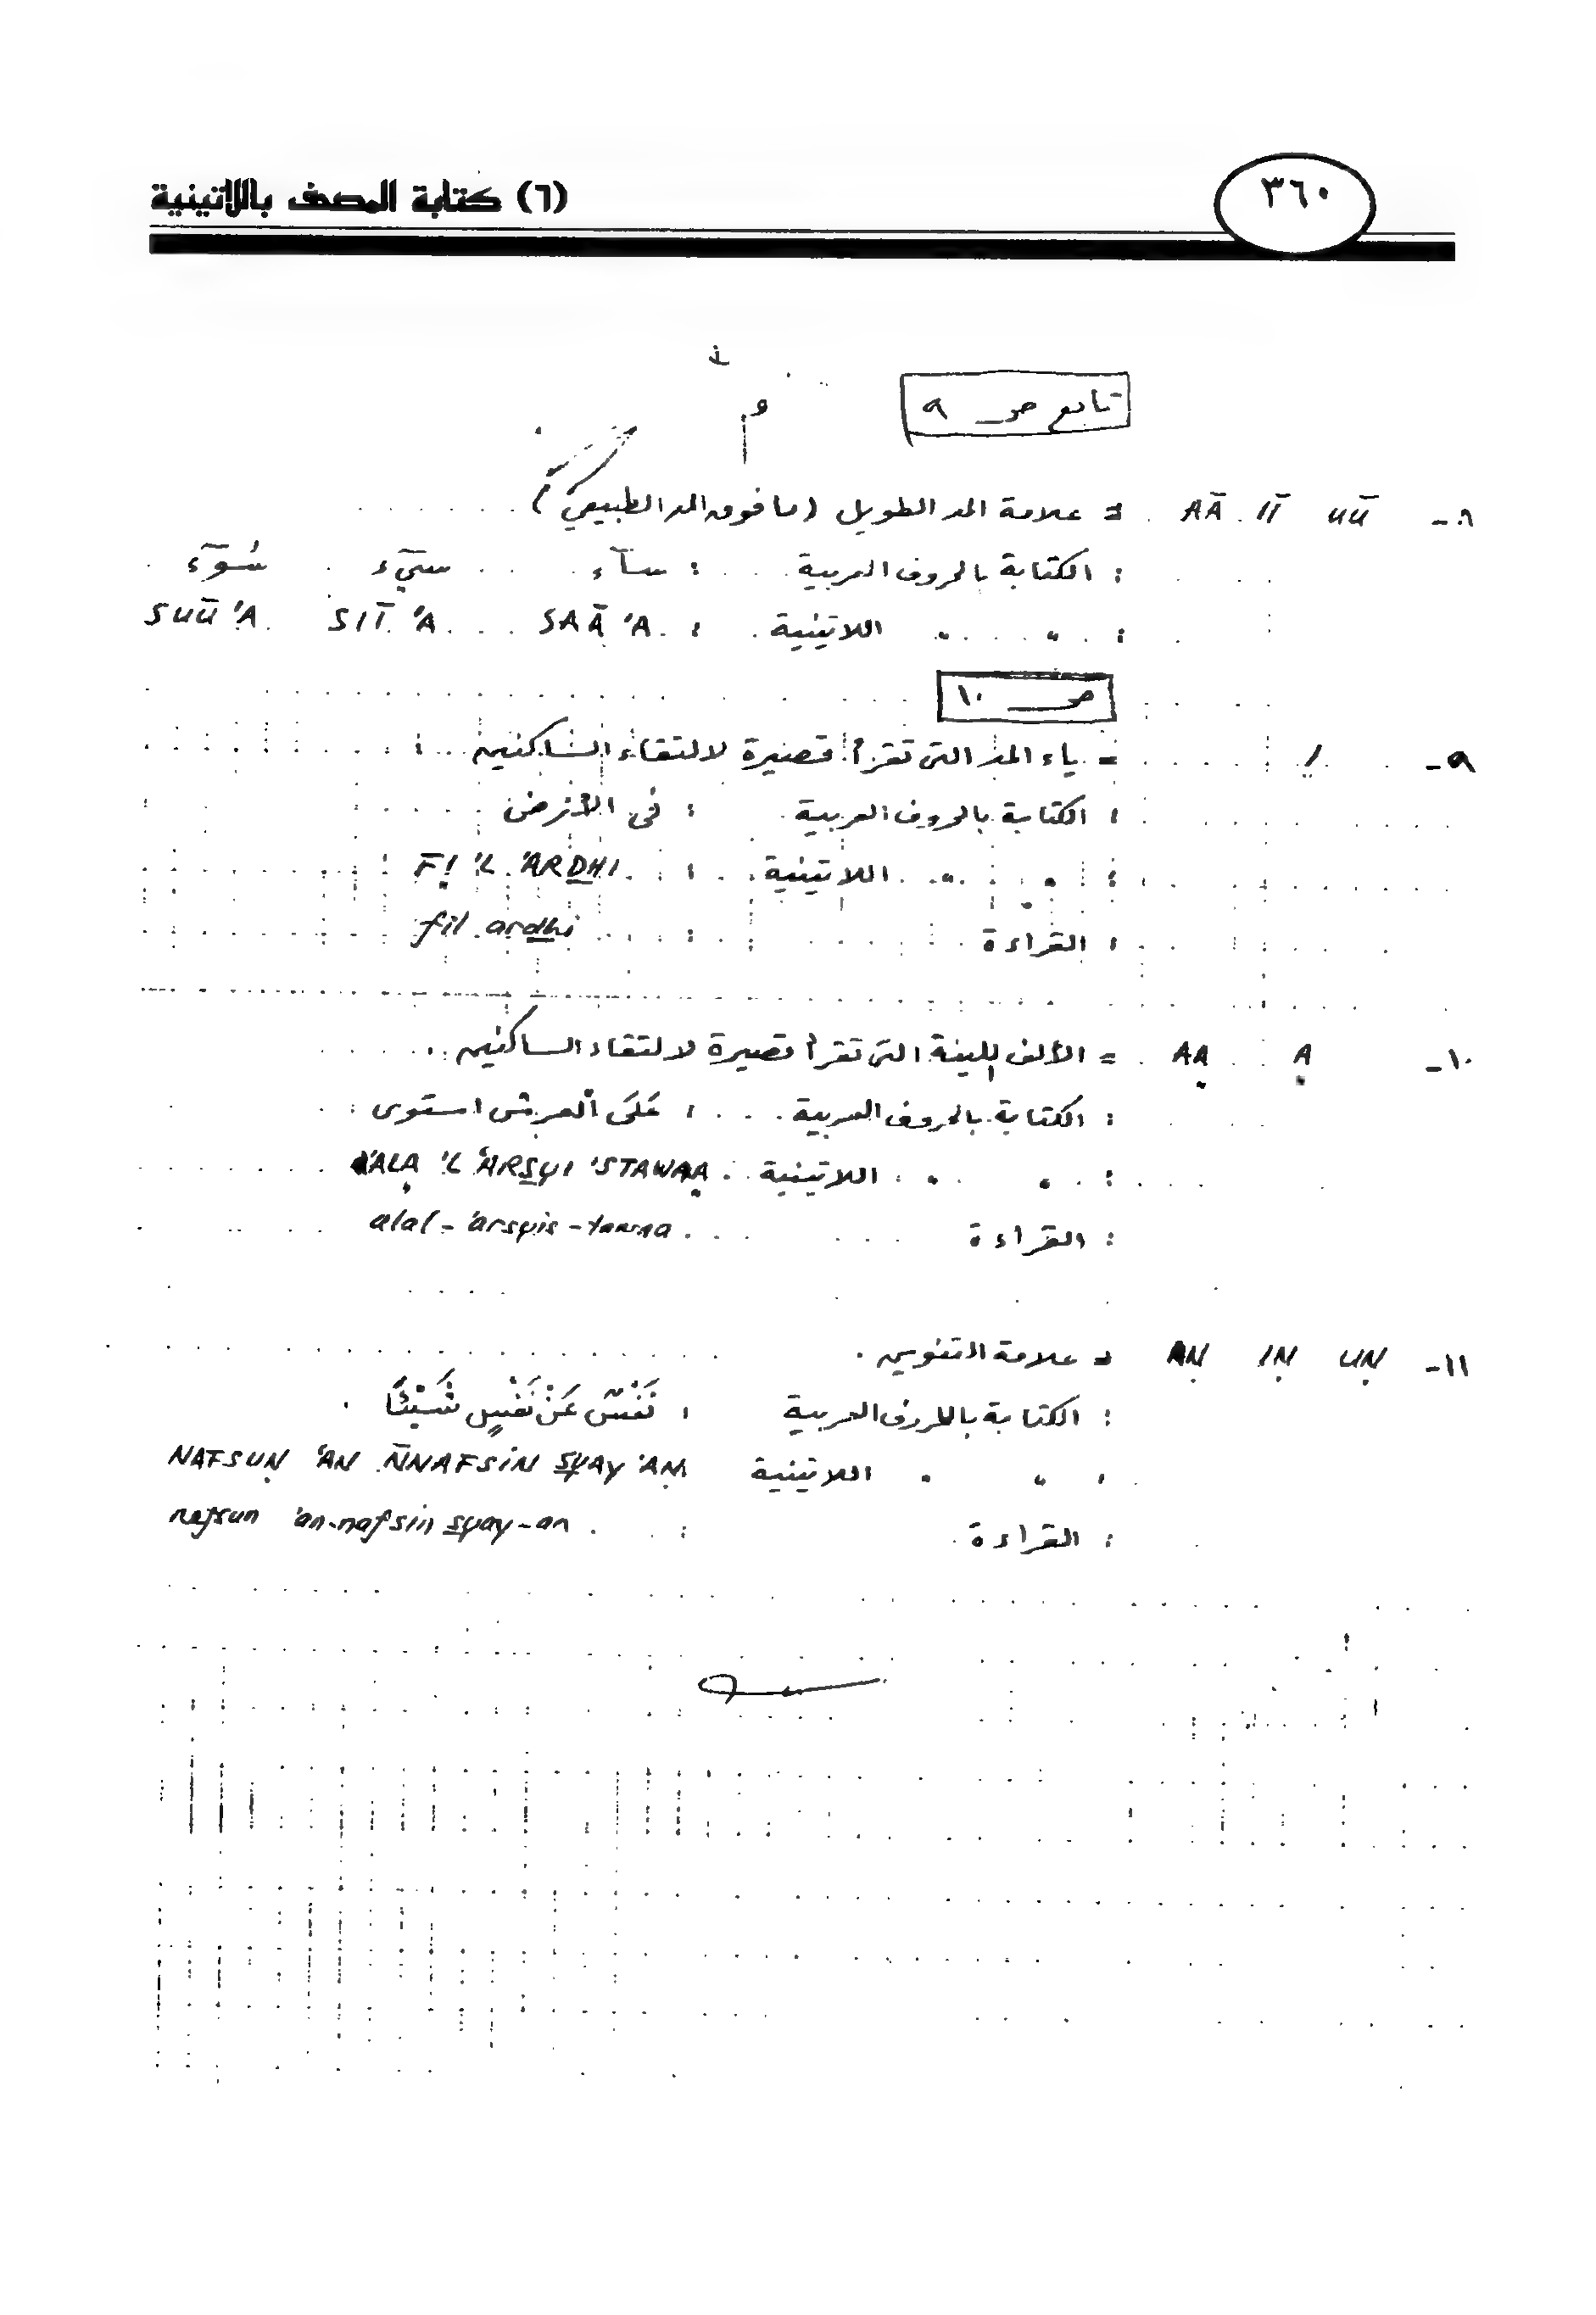 ٣٦٠
(٦) كتابة المصحف باللاتينية
تابع صـ ٩
٨- AĀ IĪ UŪ = علامة المد الطويل (ما فوق المد الطبيعي)
: الكتابة بالحروف العربية : سآء سيٓء سُوٓء
: " " اللاتينية : SAĀ 'A SIĪ 'A SUŪ 'A
صـ ١٠
٩- Ị = ياء المد التى تقرأ قصيرة لالتقاء الساكنين
: الكتابة بالحروف العربية : فى الأرض
: " " اللاتينية : FỊ 'L 'ARD̲H̲I
: القراءة : fil ard̲h̲i
١٠- Ạ AẠ = الألف اللينة التى تقرأ قصيرة لالتقاء الساكنين
: الكتابة بالحروف العربية : عَلَى ٱلعرش استوى
: " " اللاتينية : 'ALẠ 'L 'ARS̲Y̲I 'STAWAẠ
: القراءة alal-'arsyis-tawaa
١١- AṆ IṆ UṆ = علامة التنوين
: الكتابة بالحروف العربية : نَفْسٌ عَنْ نَفْسٍ شَيْئًا
: " " اللاتينية NAFSUṆ 'AN N̄NAFSIN S̲Y̲AY 'AṆ
: القراءة : nafsun 'an-nafsin s̲y̲ay-an